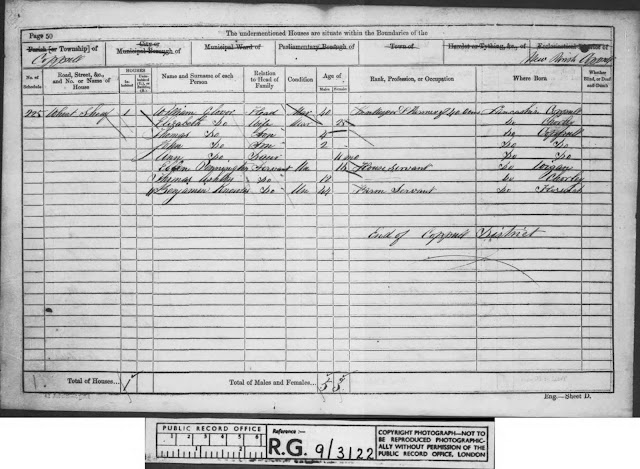 Page 50
The undermentioned Houses are situate within the Boundaries of the
Parish [or Township] of
City or Municipal Borough of
Municipal Ward of
Parliamentary Borough of
Town of
Hamlet or Tything, &c., of
Ecclesiastical District of
Coppull
New Parish
No. of Schedule
Road, Street, &c., and No. or Name of House
HOUSES
Inhabited
Name and Surname of each Person
Relation to Head of Family
Condition
Age of
Males
Females
Rank, Profession, or Occupation
Where Born
Whether Blind, or Deaf and Dumb
Wheat Sheaf 1 William Head Mar 40 Lancashire Coppull
Elizabeth Do Wife Mar 25 Do
Thomas Do Son 4 Do Coppull
Do Son 2 Do Do
Ann Do Do Do
Servant Un 16 House Servant Do Wigan
Thomas Do 12 Do Chorley
Benjamin Do Un 44 Farm Servant Do
End of Coppull District
Total of Houses... 1
Total of Males and Females... 5 3
Eng.—Sheet D.
PUBLIC RECORD OFFICE
1 2
Reference:—
R.G. 9/3122
COPYRIGHT PHOTOGRAPH—NOT TO
BE REPRODUCED PHOTOGRAPHIC-
ALLY WITHOUT PERMISSION OF THE
PUBLIC RECORD OFFICE, LONDON